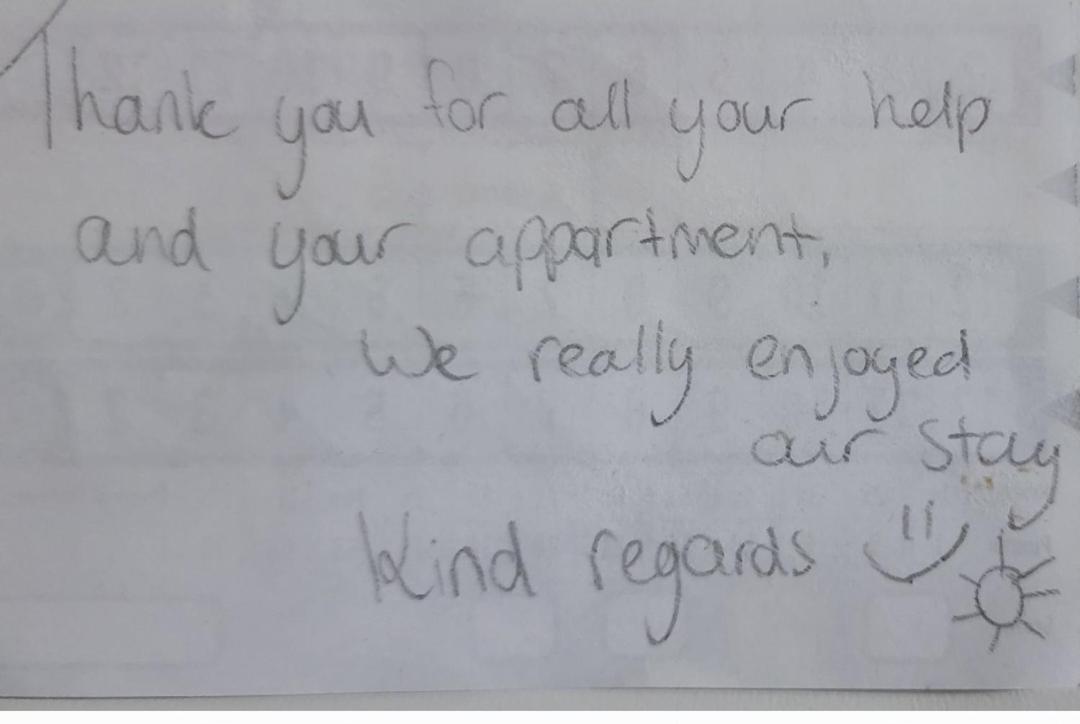 Thank you for all your help
and your appartment,
We really enjoyed
our stay
Kind regards